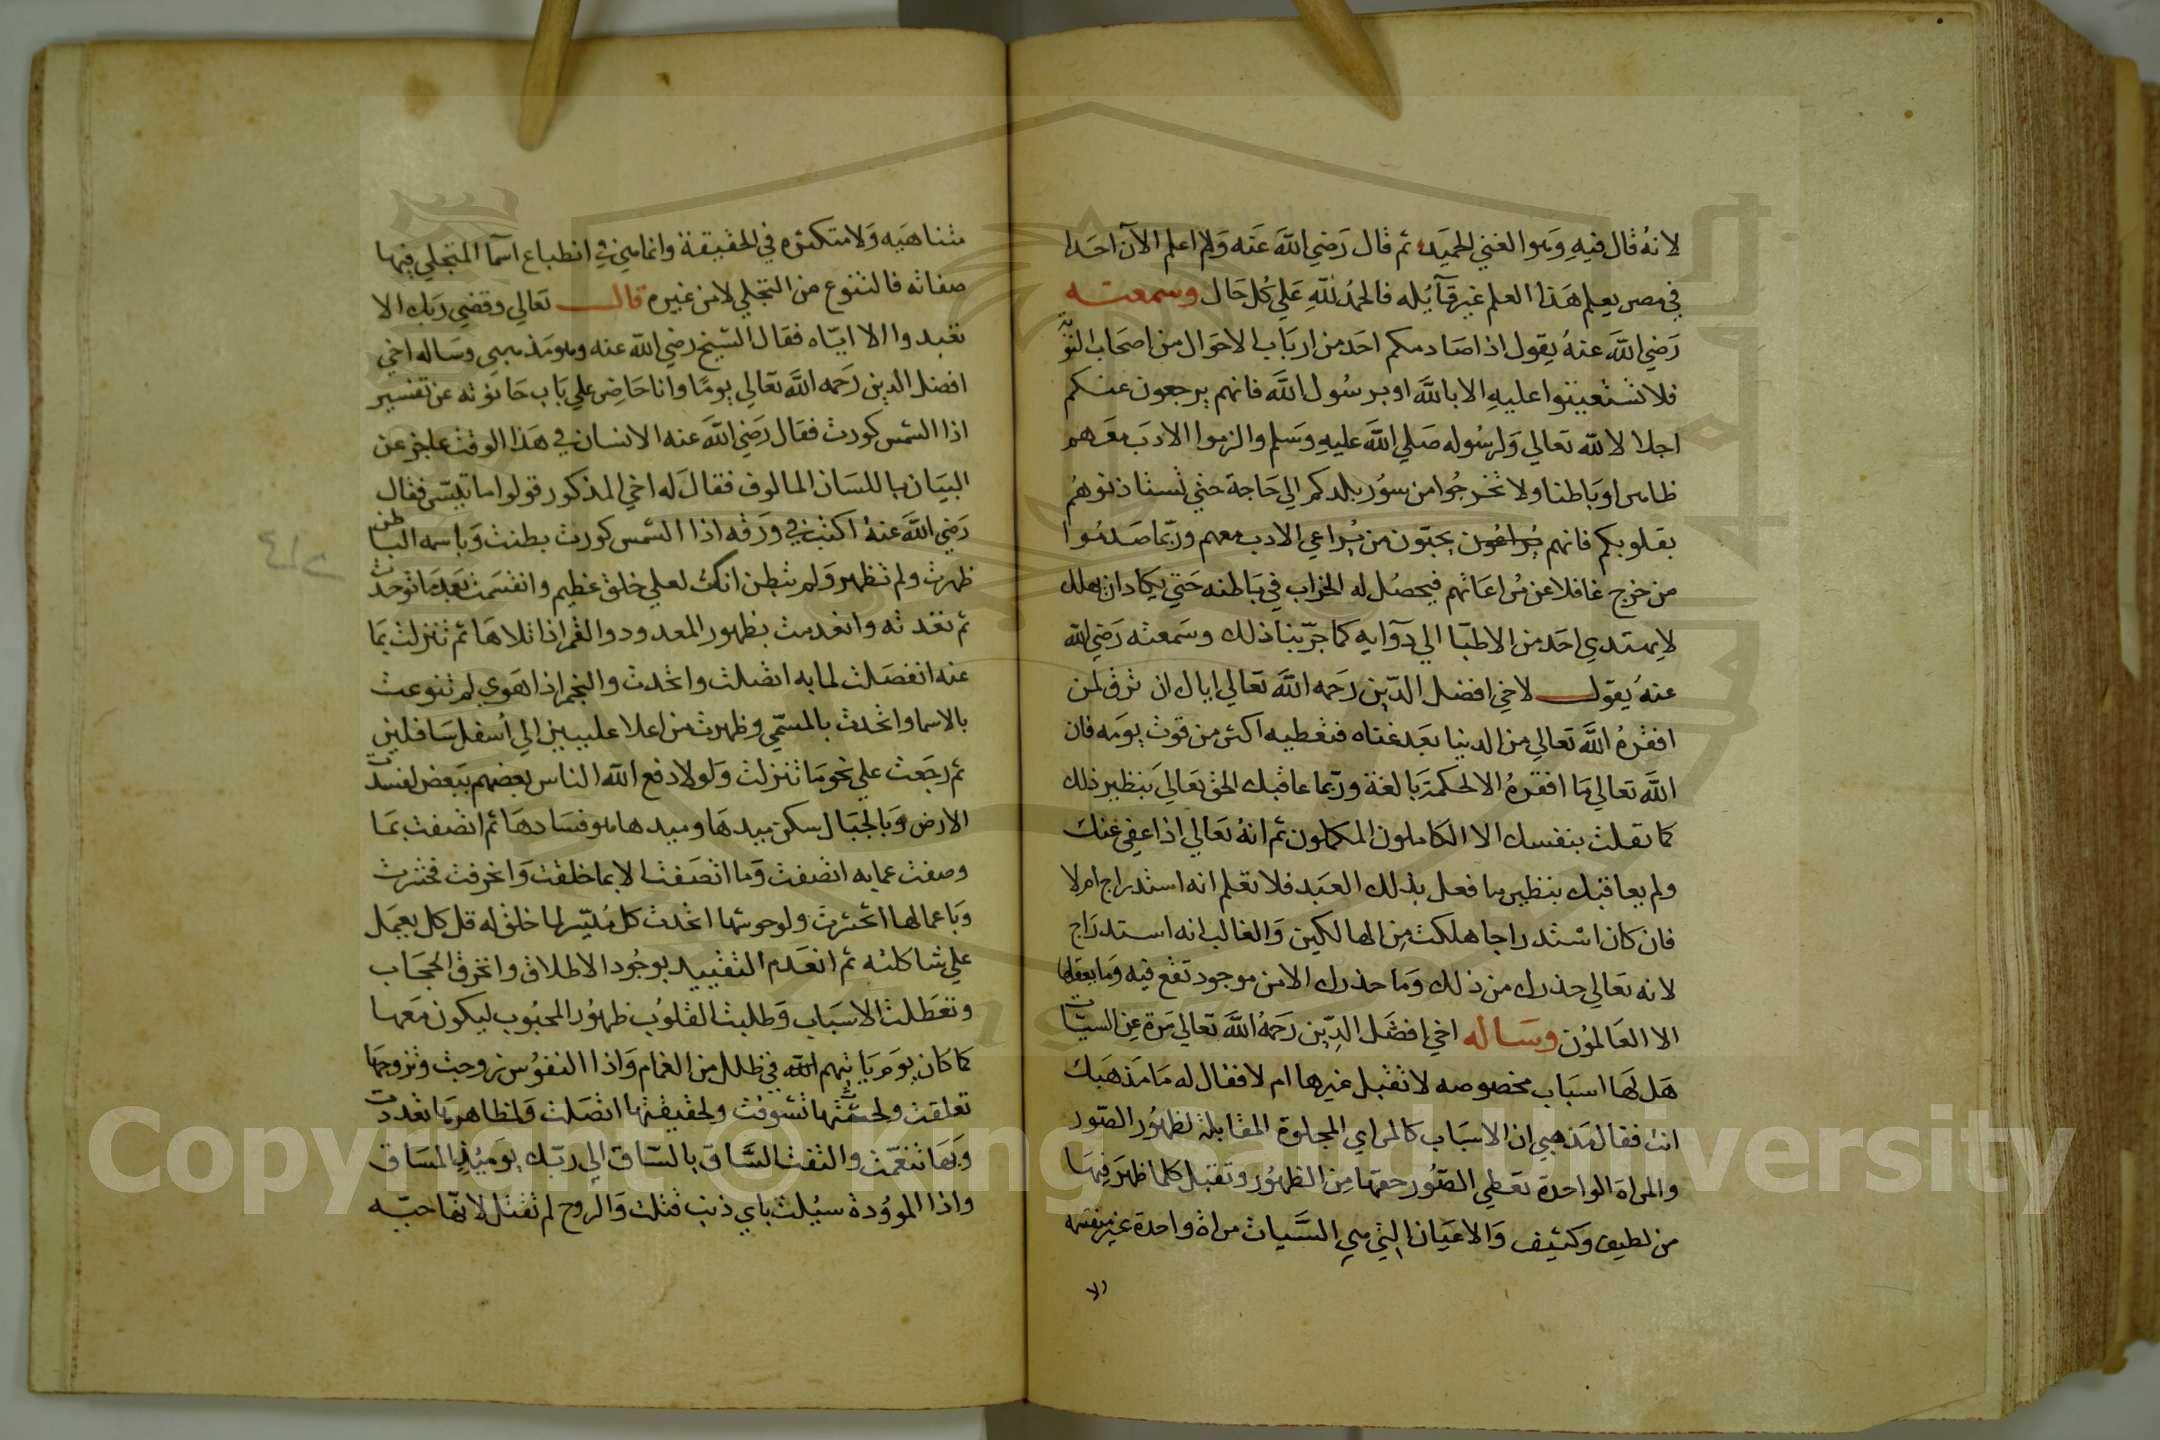 لانه قال فيه وهو الغني الحميد ثم قال رضي الله عنه ولم اعلم الآن احدا
في مصر يعلم هذا العلم غير قآيله فالحمد لله علي كل حال وسمعته
رضي الله عنه يقول اذا صادمكم احد من ارباب الاحوال من اصحاب النوبة
فلا تستعينوا عليه الا بالله او برسول الله فانهم يرجعون عنكم
اجلالا لله تعالي ولرسوله صلي الله عليه وسلم والزموا الادب معهم
ظاهرا وباطنا ولا تخرجوا من سور بلدكم الي حاجة حتي تستاذنوهم
بقلوبكم فانهم يحبون من يراعي الادب معهم وربما صدموا
من خرج غافلا عن مراعاتهم فيحصل له الخراب في باطنه حتي يكاد ان يهلك
لا يهتدي احد من الاطبا الي دوآيه كما جربنا ذلك وسمعته رضي الله
عنه يقول لاخي افضل الدين رحمه الله تعالي اياك ان ترق لمن
افقره الله تعالي من الدنيا بعد غناه فتعطيه اكثر من قوت يومه فان
الله تعالي ما افقره الا لحكمة بالغة وربما عاقبك الحق تعالي بنظير ذلك
كما تقلت بنفسك الا الكاملون المكملون ثم انه تعالي اذا عفي عنك
ولم يعاقبك بنظير ما فعل بذلك العبد فلا تعلم انه استدراج ام لا
فان كان استدراجا هلكت مِن الهالكين والغالب انه استدراج
لانه تعالي حذرك من ذلك وما حذرك الا من موجود تقع فيه وما يعقلها
الا العالمون وساله اخي افضل الدين رحمه الله تعالي مرة عن السيات
هل لها اسباب مخصوصه لا تقبل غيرها ام لا فقال له ما مذهبك
انت فقال مذهبي ان الاسباب كالمراي المجلوة المقابلة لظهور الصور
والمراة الواحدة تعطي الصور حقها من الظهور وتقبل كلما ظهر فيها
من لطيف وكثيف والاعيان التي هي السيات مراة واحدة غير منقسمه
ولا
متناهيه ولا متكثره في الحقيقة وانما هي في انطباع اسآ المتجلي فيها
صفاته فالتنوع من التجلي لا من غيره قال تعالي وقضي ربك الا
تعبدوا الا اياه فقال الشيخ رضي الله عنه وهو مذهبي وساله اخي
افضل الدين رحمه الله تعالي يوما وانا حاضر علي باب حانوته عن تفسير
اذا الشمس كورت فقال رضي الله عنه الانسان في هذا الوقت عاجز عن
البيان باللسان المالوف فقال له اخي المذكور قولوا ما تيسر فقال
رضي الله عنه اكتب في ورقه اذا الشمس كورت بطنت وباسمه الباطن
ظهرت ولم تظهر ولم تبطن انك لعلي خلق عظيم وانقسمت بعد ما توحدت
ثم تعددته وانعدمت بظهور المعدود والقمر اذا تلاها ثم تنزلت بما
عنه انفصلت لما به اتصلت واتحدت والنجم اذا هوي لم تنوعت
بالاسما واتحدت بالمسمي وظهرت من اعلا عليين الي اسفل سافلين
ثم رجعت علي نحو ما تنزلت ولولا دفع الله الناس بعضهم ببعض لفسدت
الارض وبالجبال سكن ميدها وميدها هو فسادها ثم اتصفت بما
وصفت عمابه اتصفت وما اتصفت الا بما خلقت وانحرفت فحشرت
وباعمالها انحشرت ولوحوشها اتحدت كل ميسر لما خلق له قل كل يعمل
علي شاكلته ثم انعدم التقييد بوجود الاطلاق وانخرق الحجاب
وتعطلت الاسباب وطلبت القلوب ظهور المحبوب ليكون معها
كما كان يوم ياتيهم الله في ظلل من الغمام واذا النفوس زوجت وتزوجها
تعلقت ولجنتها تشوقت ولحقيقتها اتصلت ولمظاهرها تعددت
وبها تنعمت والتفت الساق بالساق الي ربك يوميذ المساق
واذا الموؤدة سيلت باي ذنب قتلت والروح لم تقتل لانها حيه
Copyright © King Saud University